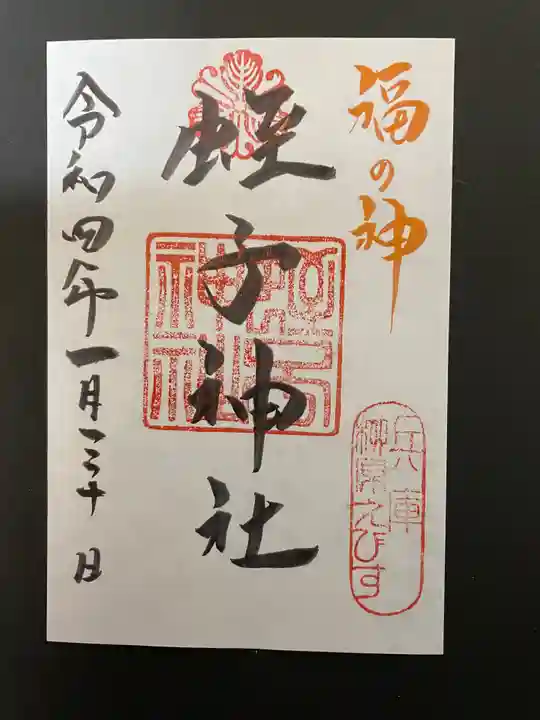 福の神
兵庫
柳原えびす
蛭子神社
蛭子
神社
令和四年一月三十日